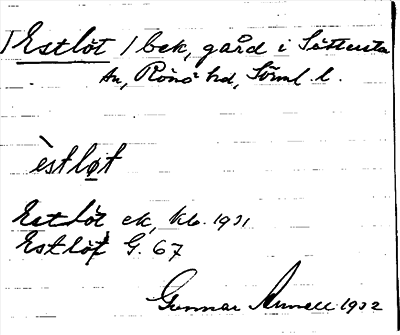 [Estlöt] bek, gård i Sättersta
sn, Rönö hd, Söml. l.
èstløt
Estlöt ek, kb. 1931
Estlöt G. 67
Gunnar Arnell 1932